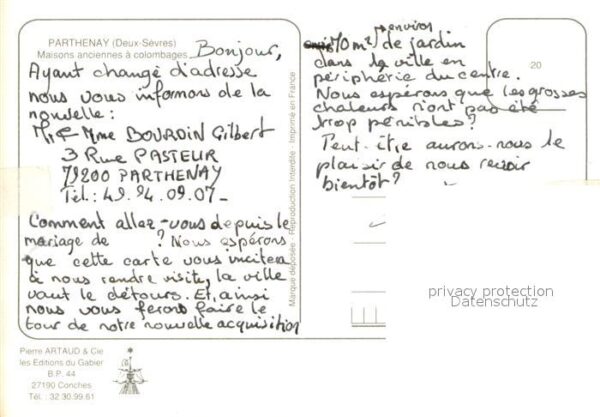 PARTHENAY (Deux-Sèvres)
Maisons anciennes à colombages
Bonjour,
Ayant changé d'adresse
nous vous informons de la
nouvelle :
Mr & Mme BOURDIN Gilbert
3 Rue PASTEUR
79200 PARTHENAY
Tél : 49.94.09.07 -
Comment allez-vous depuis le
mariage de ? Nous espérons
que cette carte vous incitera
à nous rendre visite, la ville
vaut le détours. Et, ainsi
nous vous ferons faire le
tour de notre nouvelle acquisition
Pierre ARTAUD & Cie
les Editions du Gabier
B.P. 44
27190 Conches
Tél. : 32.30.99.61
Marque déposée - Reproduction Interdite - Imprimé en France
environ
70 m² de jardin
dans la ville en
périphérie du centre.
Nous espérons que les grosses
chaleurs n'ont pas été
trop pénibles ?
Peut-être aurons-nous le
plaisir de nous revoir
bientôt ?
20
privacy protection
Datenschutz